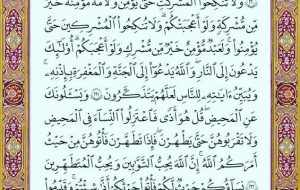 وَلَا تَنكِحُوا۟ ٱلْمُشْرِكَٰتِ حَتَّىٰ يُؤْمِنَّ وَلَأَمَةٌ مُّؤْمِنَةٌ خَيْرٌ
مِّن مُّشْرِكَةٍ وَلَوْ أَعْجَبَتْكُمْ وَلَا تُنكِحُوا۟ ٱلْمُشْرِكِينَ حَتَّىٰ
يُؤْمِنُوا۟ وَلَعَبْدٌ مُّؤْمِنٌ خَيْرٌ مِّن مُّشْرِكٍ وَلَوْ أَعْجَبَكُمْ أُو۟لَٰٓئِكَ
يَدْعُونَ إِلَى ٱلنَّارِ وَٱللَّهُ يَدْعُوٓا۟ إِلَى ٱلْجَنَّةِ وَٱلْمَغْفِرَةِ بِإِذْنِهِۦ
وَيُبَيِّنُ ءَايَٰتِهِۦ لِلنَّاسِ لَعَلَّهُمْ يَتَذَكَّرُونَ ٢٢١ وَيَسْـَٔلُونَكَ
عَنِ ٱلْمَحِيضِ قُلْ هُوَ أَذًى فَٱعْتَزِلُوا۟ ٱلنِّسَآءَ فِى ٱلْمَحِيضِ
وَلَا تَقْرَبُوهُنَّ حَتَّىٰ يَطْهُرْنَ فَإِذَا تَطَهَّرْنَ فَأْتُوهُنَّ مِنْ حَيْثُ
أَمَرَكُمُ ٱللَّهُ إِنَّ ٱللَّهَ يُحِبُّ ٱلتَّوَّٰبِينَ وَيُحِبُّ ٱلْمُتَطَهِّرِينَ
٢٢٢ نِسَآؤُكُمْ حَرْثٌ لَّكُمْ فَأْتُوا۟ حَرْثَكُمْ أَنَّىٰ شِئْتُمْ وَقَدِّمُوا۟